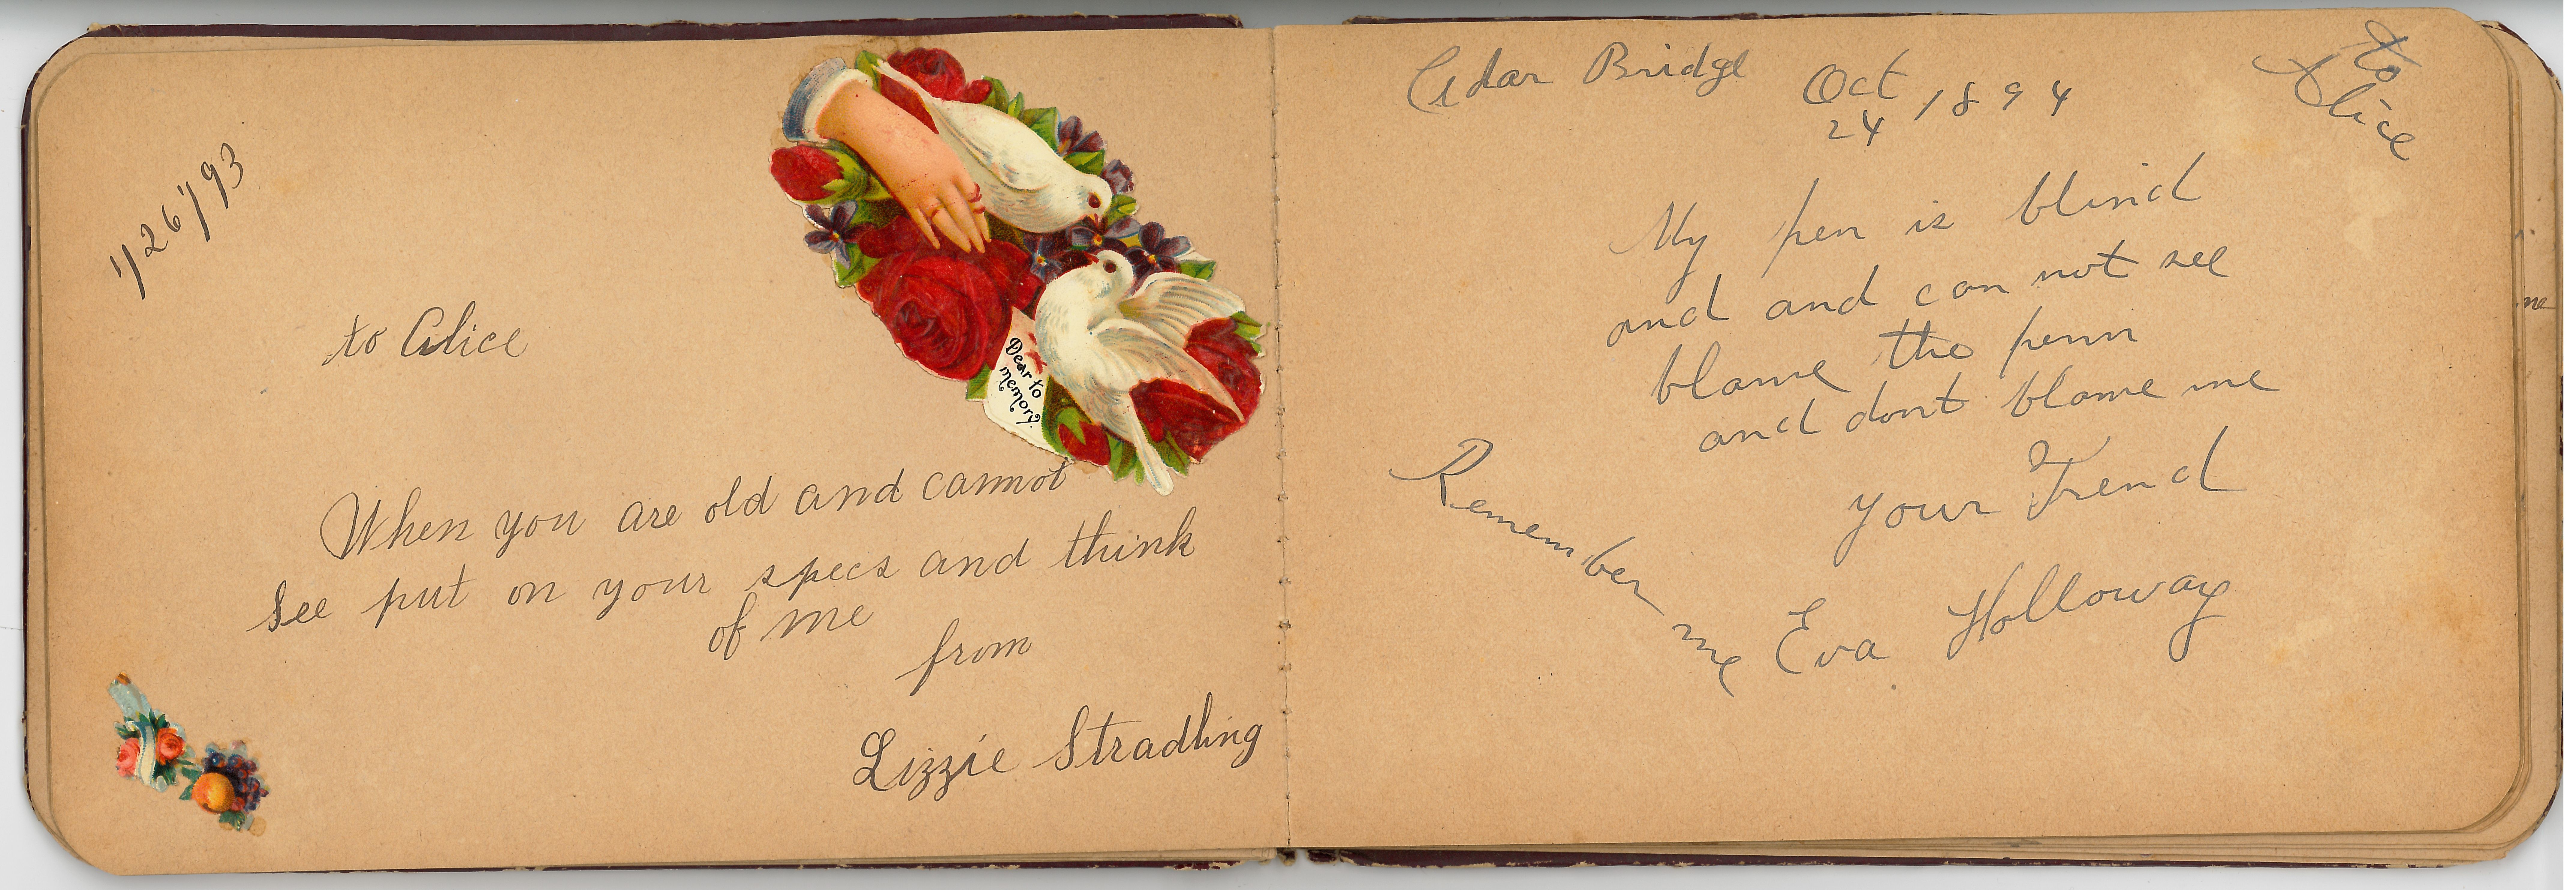 1/26/93
to Alice
Dear to
memory.
When you are old and cannot
see put on your specs and think
of me
from
Lizzie Stradling
Cedar Bridge Oct 24, 1894
to
Alice
My pen is blind
and and can not see
blame the penn
and dont blame me
your Frend
Eva Holloway
Remember me
me